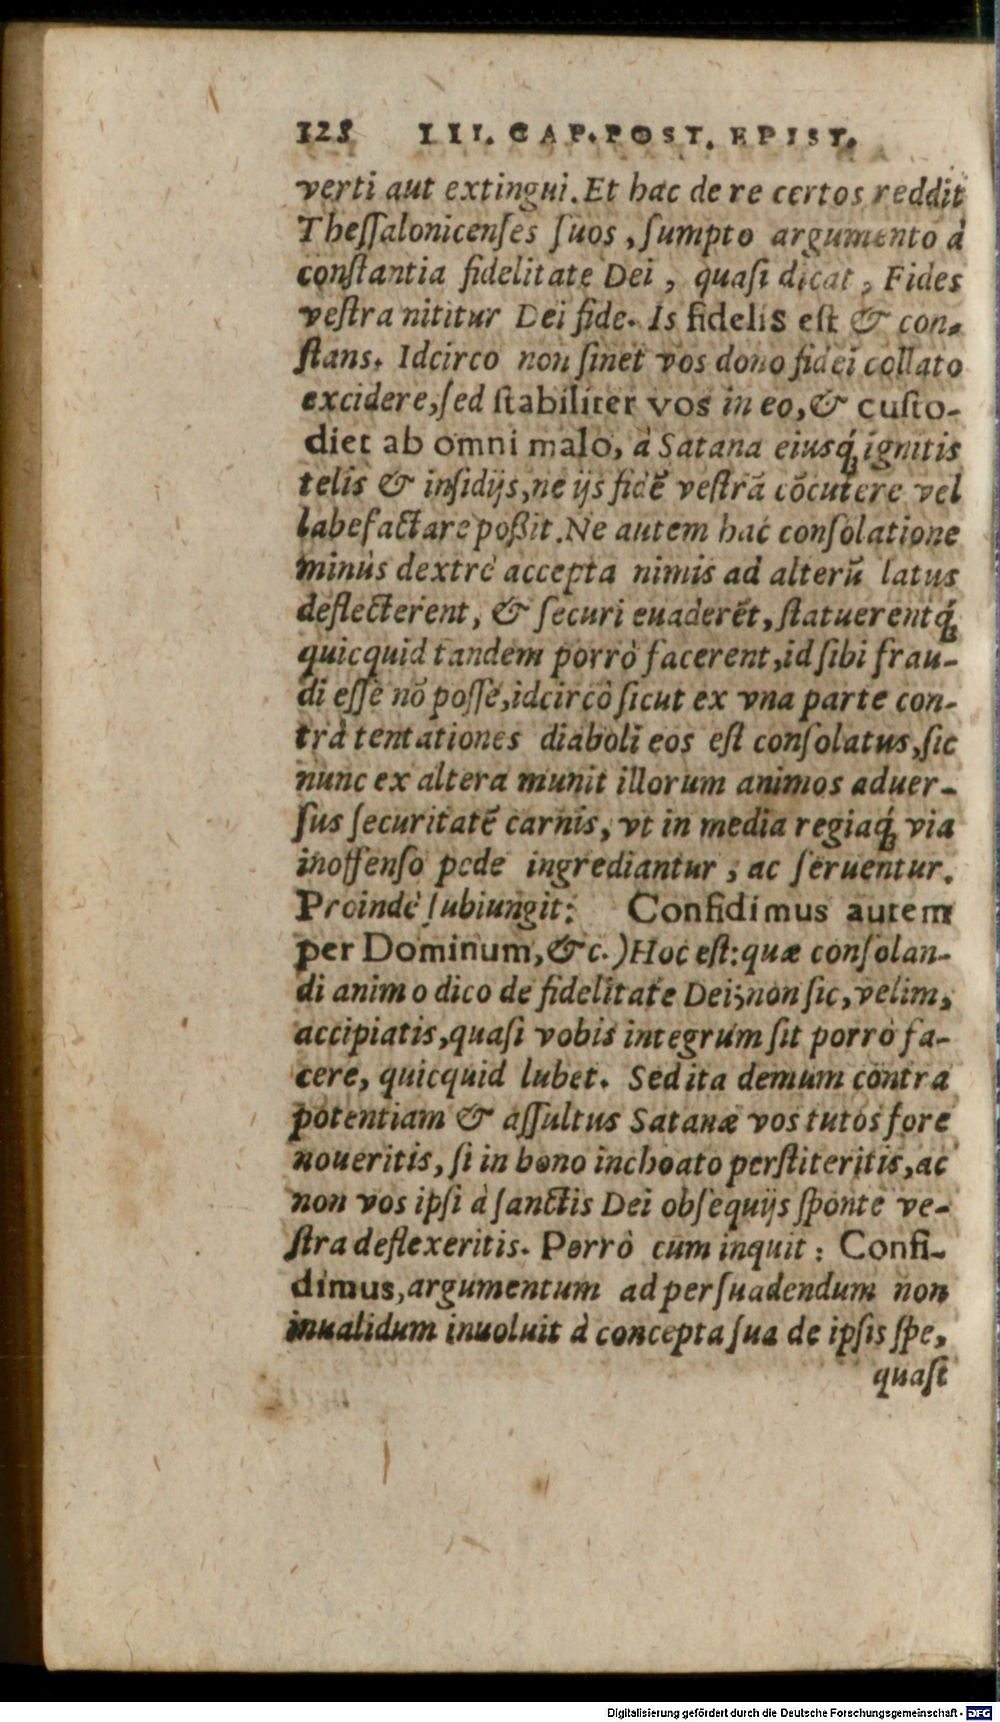 128 III. CAP. POST. EPIST.
verti aut extingui. Et hac de re certos reddit
Theſſalonicenſes ſuos, ſumpto argumento à
conſtantia fidelitate Dei, quaſi dicat, Fides
veſtra nititur Dei fide. Is fidelis eſt & con-
ſtans. Idcirco non ſinet vos dono fidei collato
excidere, ſed ſtabiliter vos in eo, & cuſto-
diet ab omni malo, à Satana eiusq́; ignitis
telis & inſidijs, ne ijs fidẽ veſtrã cõcutere vel
labefactare poßit. Ne autem hac conſolatione
minùs dextrè accepta nimis ad alterũ latus
deflecterent, & ſecuri euaderẽt, ſtatuerentq́;
quicquid tandem porrò facerent, id ſibi frau-
di eſſe nõ poſſe, idcircò ſicut ex vna parte con-
trà tentationes diaboli eos eſt conſolatus, ſic
nunc ex altera munit illorum animos aduer-
ſus ſecuritatẽ carnis, vt in media regiaq́; via
inoffenſo pede ingrediantur, ac ſeruentur.
Proindè ſubiungit: Confidimus autem
per Dominum, &c.) Hoc eſt: quæ conſolan-
di animo dico de fidelitate Dei; non ſic, velim,
accipiatis, quaſi vobis integrum ſit porrò fa-
cere, quicquid lubet. Sed ita demum contra
potentiam & aſſultus Satanæ vos tutos fore
noueritis, ſi in bono inchoato perſtiteritis, ac
non vos ipſi à ſanctis Dei obſequijs ſponte ve-
ſtra deflexeritis. Porrò cum inquit: Confi-
dimus, argumentum ad perſuadendum non
inualidum inuoluit à concepta ſua de ipſis ſpe,
quaſi
Digitalisierung gefördert durch die Deutsche Forschungsgemeinschaft - DFG